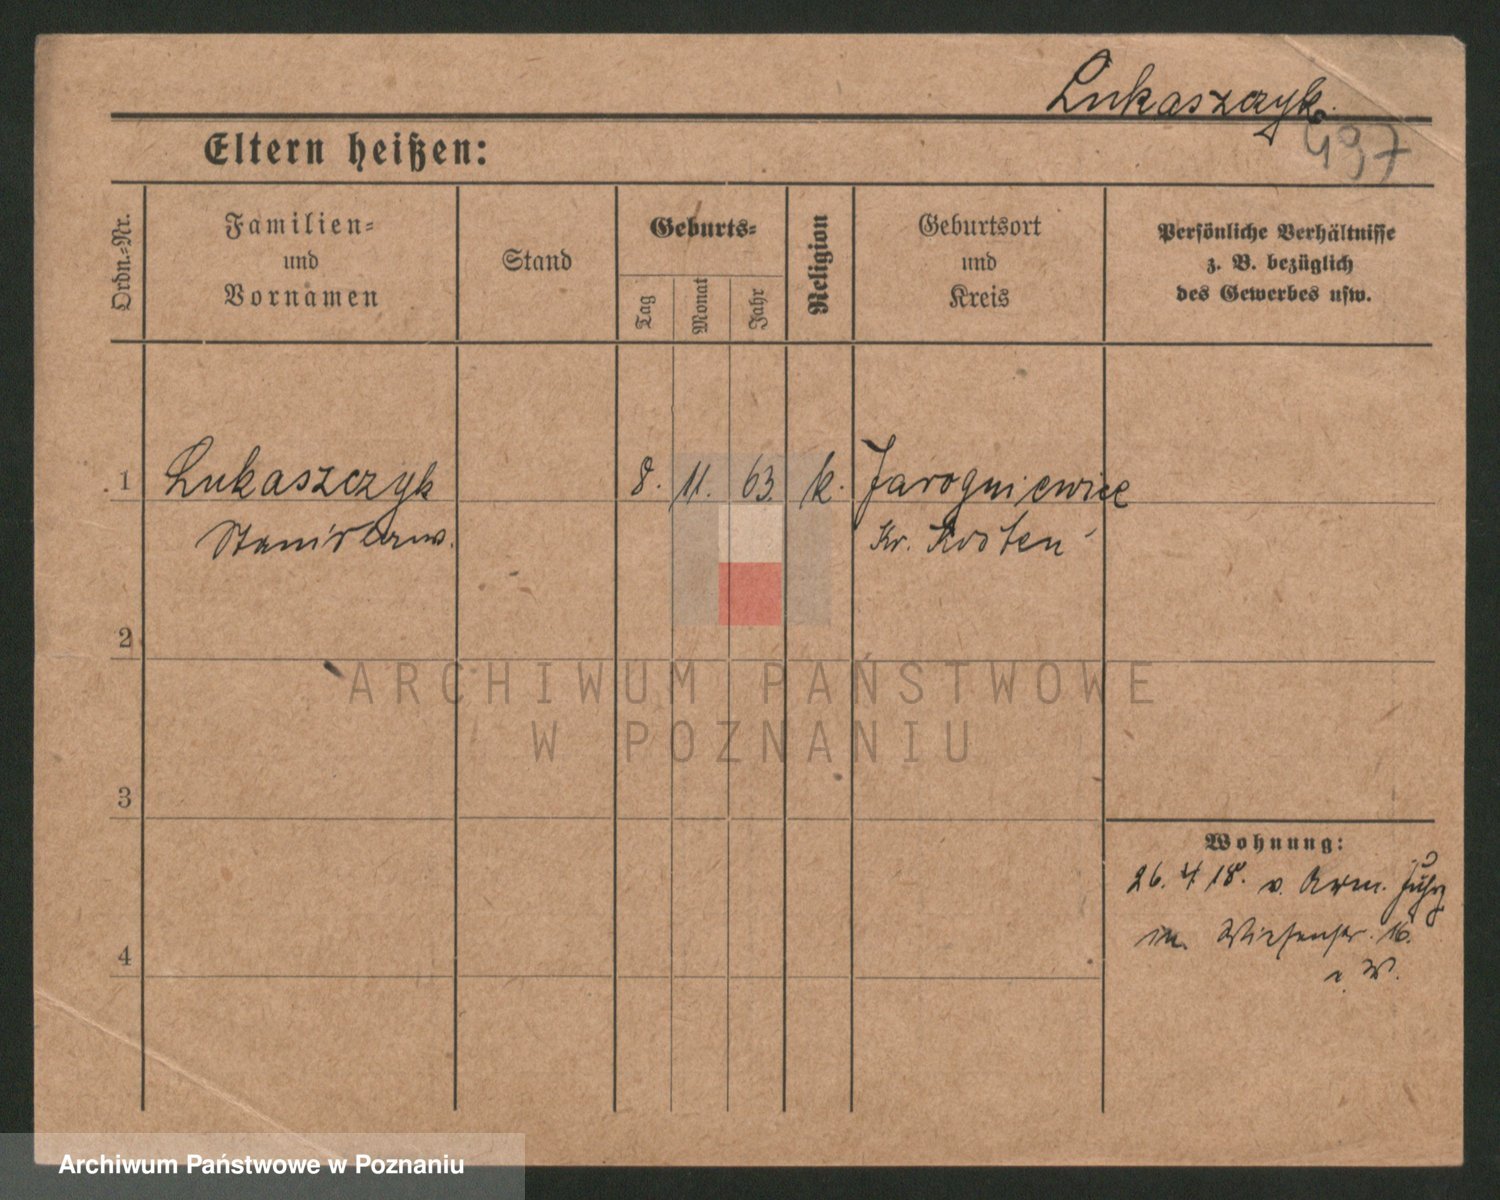 Lukaszczyk.
497
Eltern heißen:
Ordn.-Nr.
Familien-
und
Vornamen
Stand
Geburts-
Tag
Monat
Jahr
Religion
Geburtsort
und
Kreis
Persönliche Verhältnisse
z. B. bezüglich
des Gewerbes usw.
1 Lukaszczyk 8. 11. 63. k. Jarogniewice
Stanislaus. Kr. Kosten
2
ARCHIWUM PAŃSTWOWE
W POZNANIU
3
Wohnung:
26. 4 18. v. Arm.
im Wiesenstr. 16.
4
Archiwum Państwowe w Poznaniu